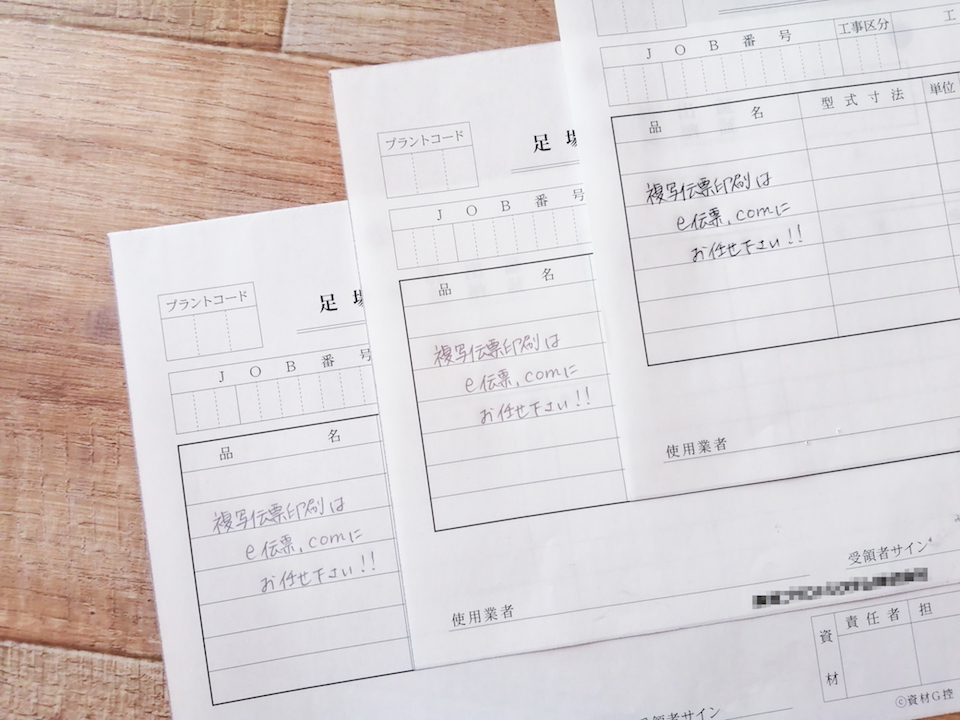 プラントコード
足場
JOB番号
品名
複写伝票印刷は
e伝票.comに
お任せ下さい!!
プラントコード
足場
JOB番号
品名
複写伝票印刷は
e伝票.comに
お任せ下さい!!
使用業者
受領者サイン
JOB番号
工事区分
工
品名
型式寸法
単位
複写伝票印刷は
e伝票.comに
お任せ下さい!!
使用業者
受領者サイン
資材
責任者
担
Ⓒ資材G控